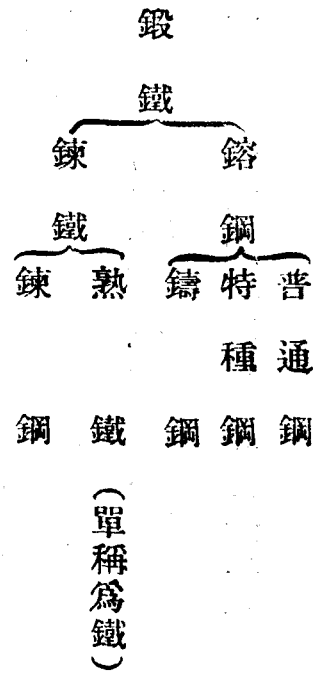 鍛鐵
鎔鋼
普通鋼
特種鋼
鑄鋼
鍊鐵
熟鐵(單稱爲鐵)
鍊鋼